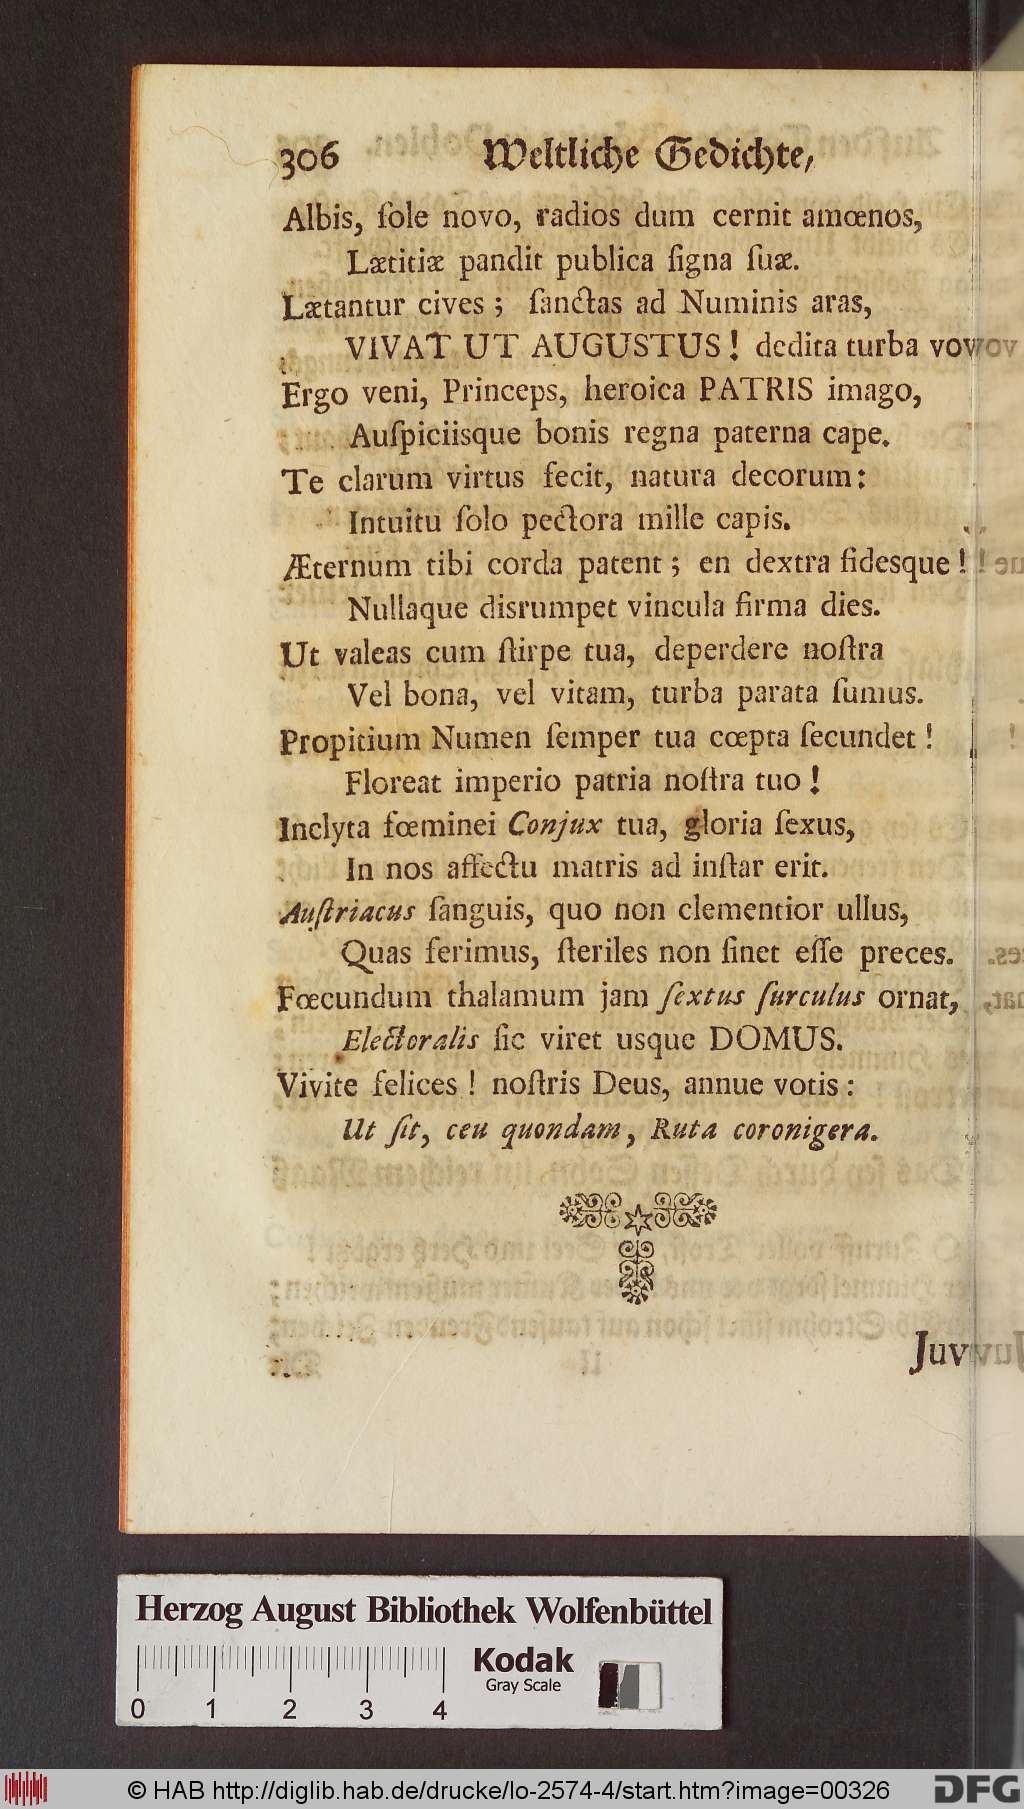 306 Weltliche Gedichte,
Albis, ſole novo, radios dum cernit amœnos,
Lætitiæ pandit publica ſigna ſuæ.
Lætantur cives ; ſanctas ad Numinis aras,
VIVAT UT AUGUSTUS ! dedita turba vovet
Ergo veni, Princeps, heroica PATRIS imago,
Auſpiciisque bonis regna paterna cape.
Te clarum virtus fecit, natura decorum :
Intuitu ſolo pectora mille capis.
Æternum tibi corda patent ; en dextra fidesque !
Nullaque disrumpet vincula firma dies.
Ut valeas cum ſtirpe tua, deperdere noſtra
Vel bona, vel vitam, turba parata ſumus.
Propitium Numen ſemper tua cœpta ſecundet !
Floreat imperio patria noſtra tuo !
Inclyta fœminei Conjux tua, gloria ſexus,
In nos affectu matris ad inſtar erit.
Auſtriacus ſanguis, quo non clementior ullus,
Quas ferimus, ſteriles non ſinet eſſe preces.
Fœcundum thalamum jam ſextus ſurculus ornat,
Electoralis ſic viret usque DOMUS.
Vivite felices ! noſtris Deus, annue votis :
Ut ſit, ceu quondam, Ruta coronigera.
Herzog August Bibliothek Wolfenbüttel
Kodak
Gray Scale
0 1 2 3 4
© HAB http://diglib.hab.de/drucke/lo-2574-4/start.htm?image=00326
DFG